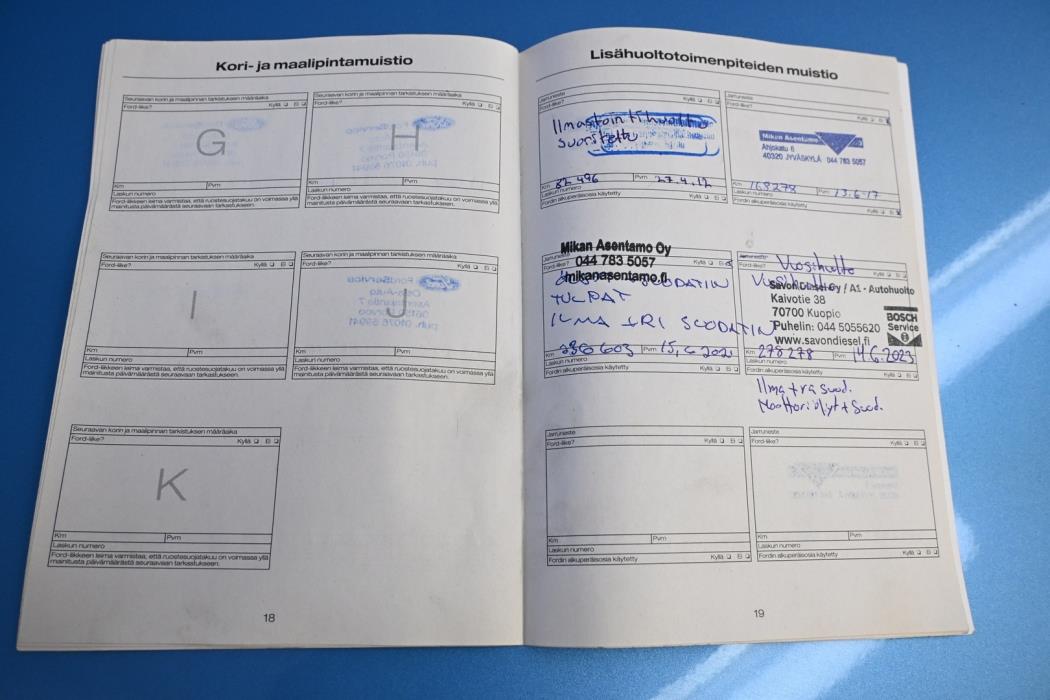 Kori- ja maalipintamuistio
Seuraavan korin ja maalipinnan tarkistuksen määräaika
Ford-liike?
Kyllä
Ei
G
Km
Pvm
Laskun numero
Ford-liikkeen leima varmistaa, että ruostesuojatakuu on voimassa yllä
mainitusta päivämäärästä seuraavaan tarkastukseen.
Seuraavan korin ja maalipinnan tarkistuksen määräaika
Ford-liike?
Kyllä
Ei
H
Km
Pvm
Laskun numero
Ford-liikkeen leima varmistaa, että ruostesuojatakuu on voimassa yllä
mainitusta päivämäärästä seuraavaan tarkastukseen.
Seuraavan korin ja maalipinnan tarkistuksen määräaika
Ford-liike?
Kyllä
Ei
I
Km
Pvm
Laskun numero
Ford-liikkeen leima varmistaa, että ruostesuojatakuu on voimassa yllä
mainitusta päivämäärästä seuraavaan tarkastukseen.
Seuraavan korin ja maalipinnan tarkistuksen määräaika
Ford-liike?
Kyllä
Ei
J
Km
Pvm
Laskun numero
Ford-liikkeen leima varmistaa, että ruostesuojatakuu on voimassa yllä
mainitusta päivämäärästä seuraavaan tarkastukseen.
Seuraavan korin ja maalipinnan tarkistuksen määräaika
Ford-liike?
Kyllä
Ei
K
Km
Pvm
Laskun numero
Ford-liikkeen leima varmistaa, että ruostesuojatakuu on voimassa yllä
mainitusta päivämäärästä seuraavaan tarkastukseen.
18
Lisähuoltotoimenpiteiden muistio
Jarruneste
Ford-liike?
Kyllä
Ei
Ilmastointihuolto
suoritettu
Km 82 496
Pvm 27.4.12
Laskun numero
Fordin alkuperäisosia käytetty
Kyllä
Ei
Jarruneste
Kyllä
Ei
Mikan Asentamo
Ahjokatu 6
40320 JYVÄSKYLÄ 044 783 5057
Km 168278
Pvm 13.6-17
Laskun numero
Fordin alkuperäisosia käytetty
Kyllä
Ei
Mikan Asentamo Oy
044 783 5057
mikanasentamo.fi
Ford-liike?
Kyllä
Ei
TULPAT
ILMA + RI SUODATIN
Km 236 603
Pvm 15,6 2021
Laskun numero
Fordin alkuperäisosia käytetty
Kyllä
Ei
Jarruneste
Vuosihuolto
Ford-liike?
Kyllä
Ei
Savon Diesel Oy / A1 - Autohuolto
Kaivotie 38
70700 Kuopio
Puhelin: 044 5055620
www.savondiesel.fi
BOSCH
Service
Km 278278
Pvm 14.6.2023
Laskun numero
Fordin alkuperäisosia käytetty
Kyllä
Ei
Ilma + ra suod.
Moottoriöljyt + suod.
Jarruneste
Ford-liike?
Kyllä
Ei
Km
Pvm
Laskun numero
Fordin alkuperäisosia käytetty
Kyllä
Ei
Jarruneste
Ford-liike?
Kyllä
Ei
Km
Pvm
Laskun numero
Fordin alkuperäisosia käytetty
Kyllä
Ei
19